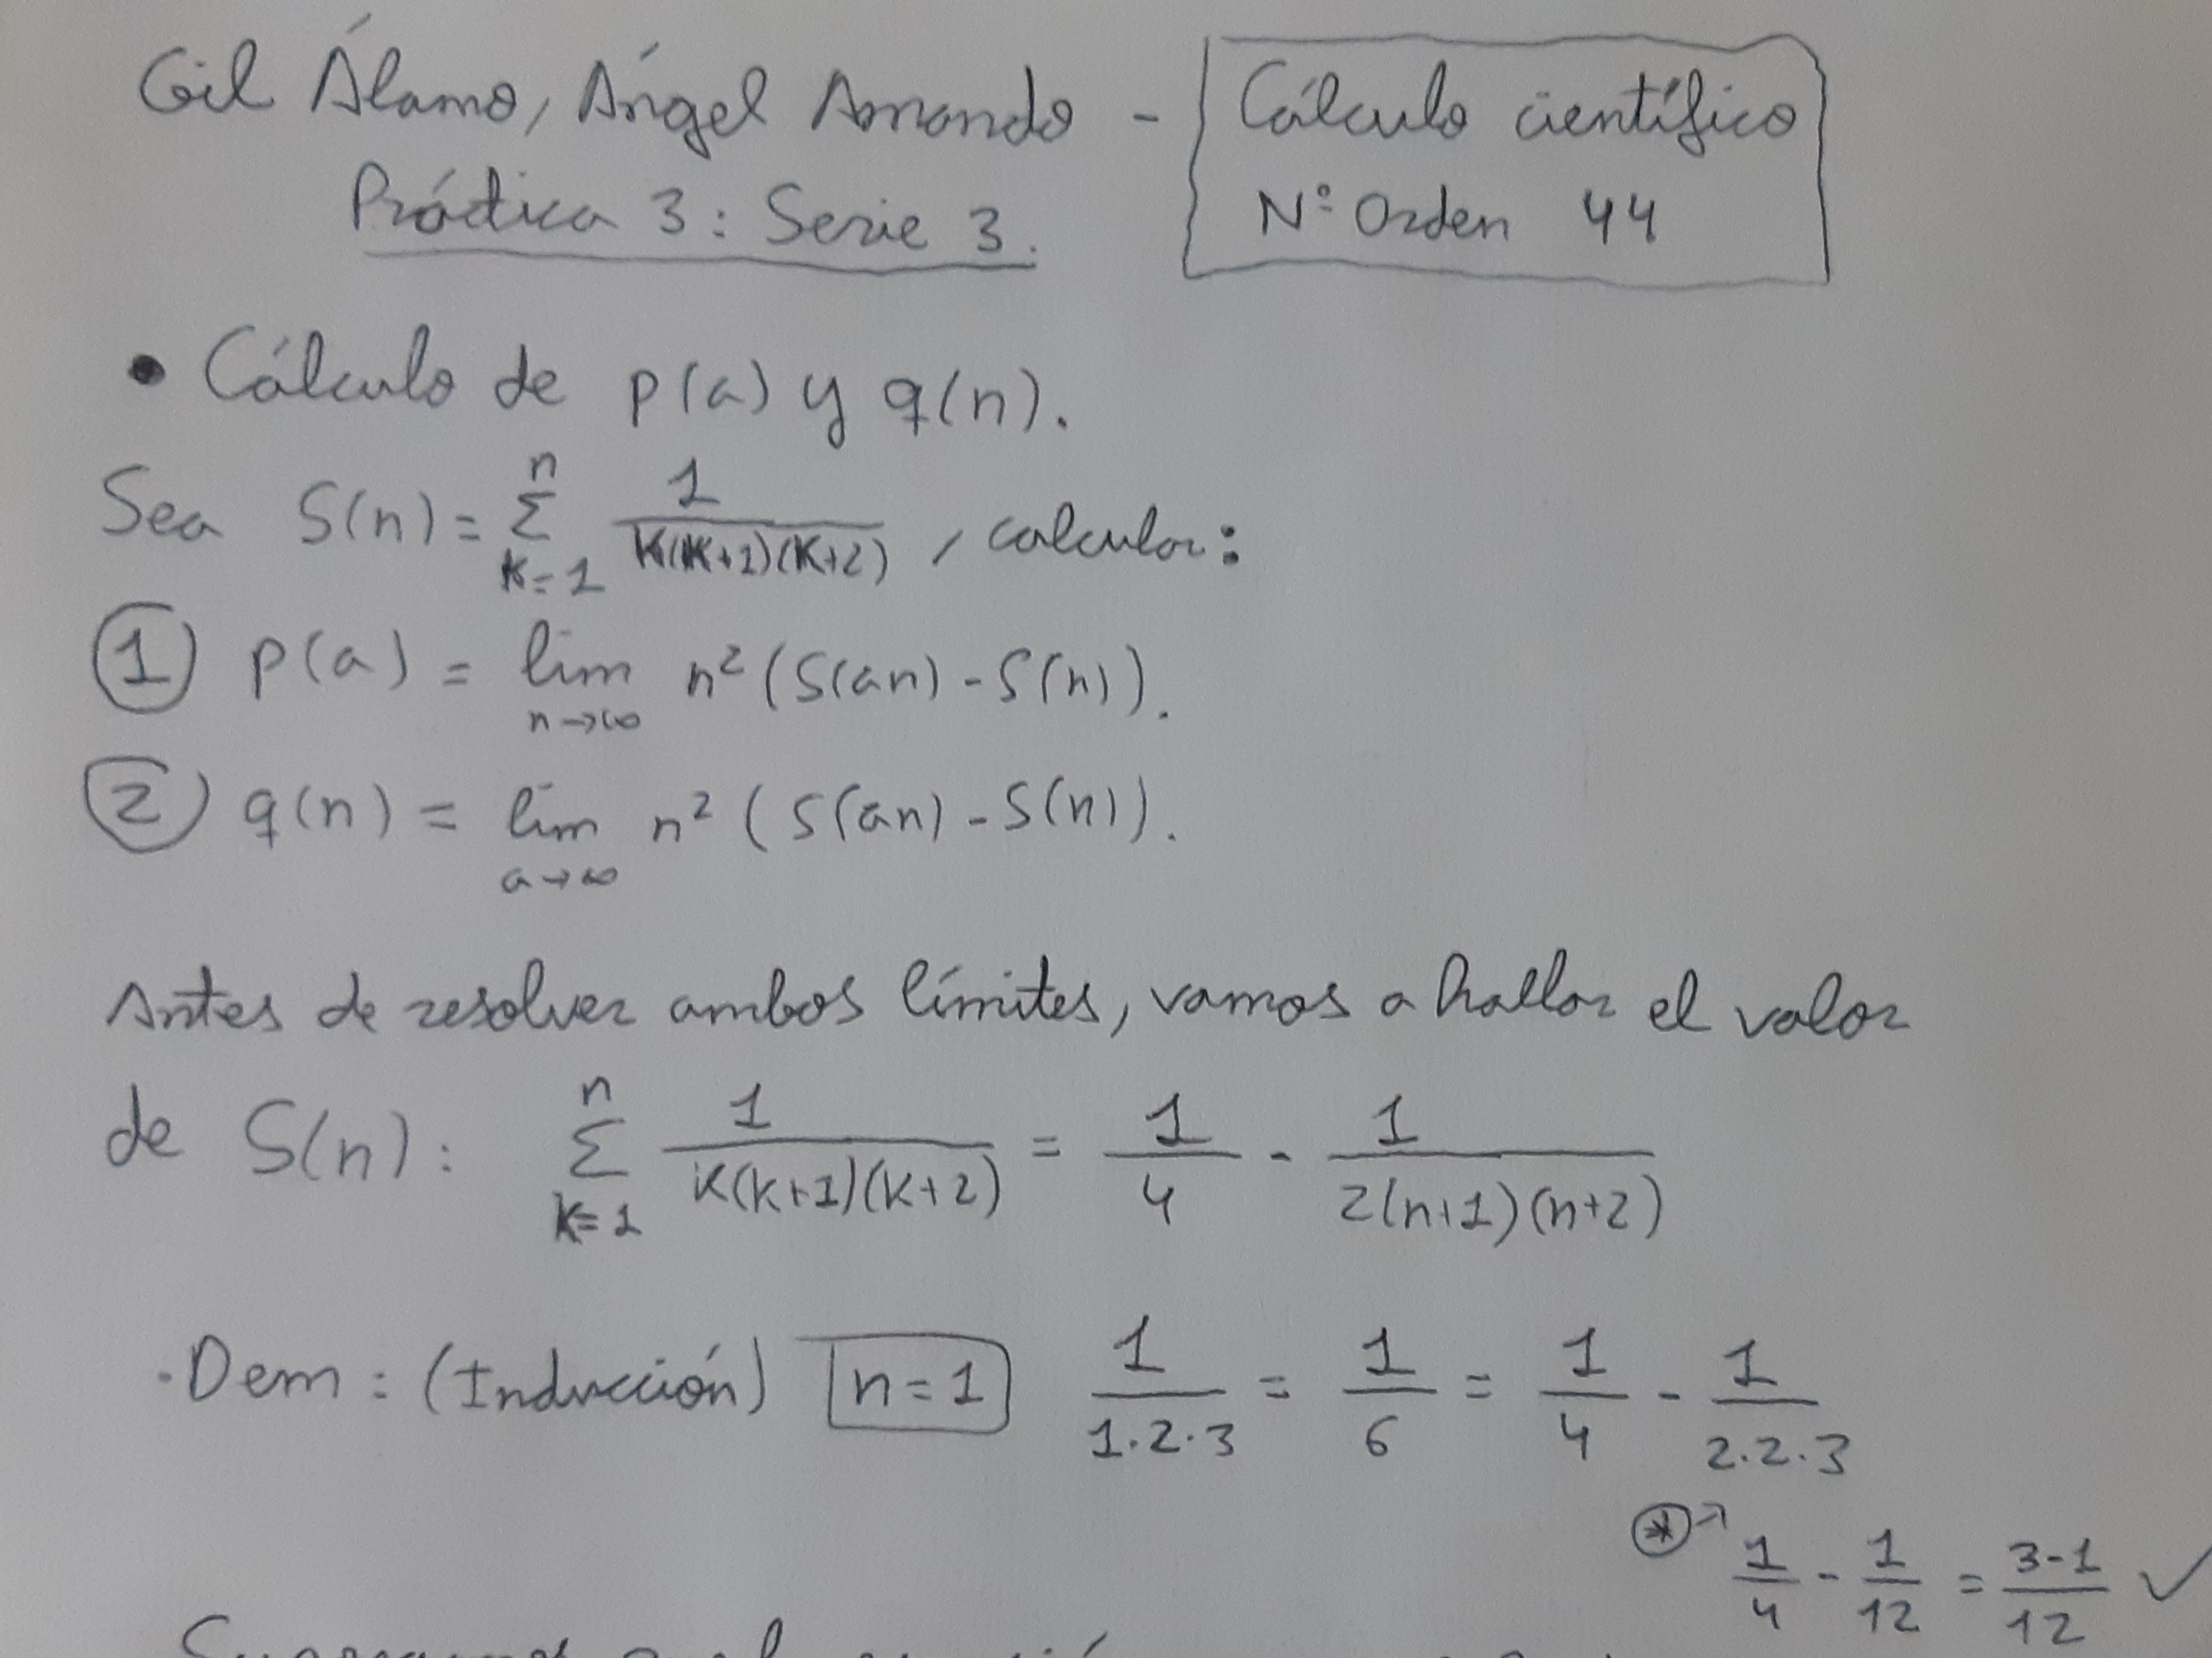 Gil Álamo, Ángel Armando - Cálculo científico
Práctica 3: Serie 3. Nº Orden 44
• Cálculo de p(a) y q(n).
Sea S(n) = Σ_{k=1}^{n} 1/(k(k+1)(k+2)), calcular:
① p(a) = lim_{n→∞} n² (S(an) - S(n)).
② q(n) = lim_{a→∞} n² (S(an) - S(n)).
Antes de resolver ambos límites, vamos a hallar el valor
de S(n): Σ_{k=1}^{n} 1/(k(k+1)(k+2)) = 1/4 - 1/(2(n+1)(n+2))
·Dem: (Inducción) n=1 1/(1·2·3) = 1/6 = 1/4 - 1/(2·2·3)
⊛→ 1/4 - 1/12 = (3-1)/12 ✓